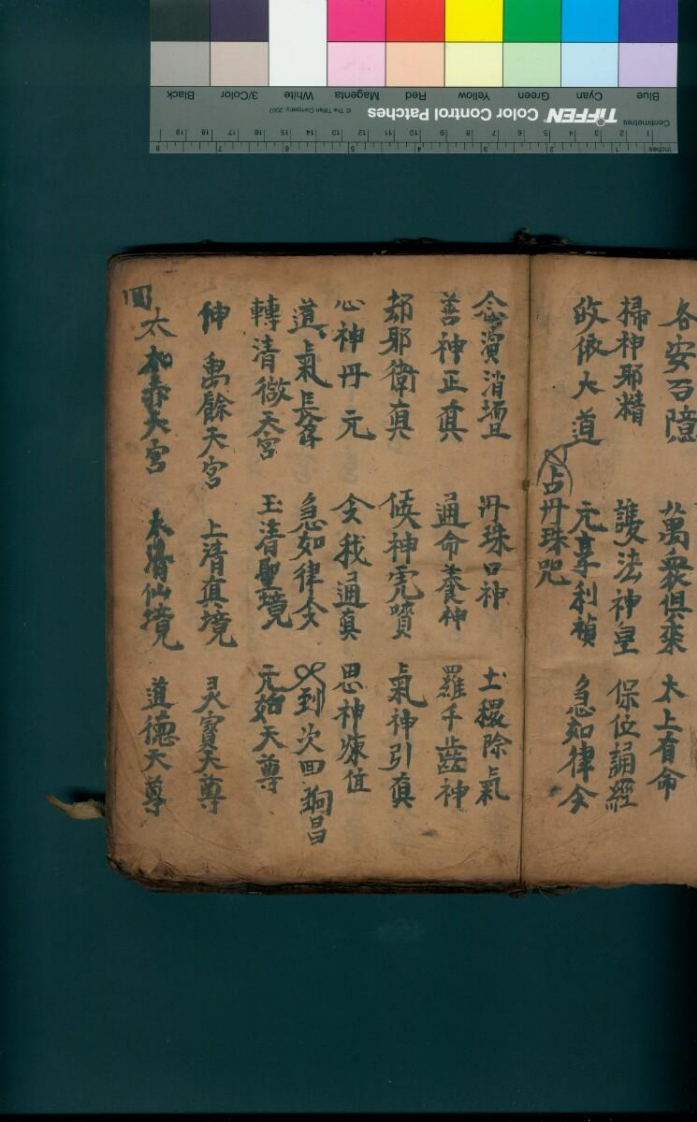 各安召隱 萬衆俱來 太上有命
掃神邪精 護法神皇 保位誦經
皈依大道 元亨利禎 急如律令
占丹珠咒
念演消 丹珠口神 土穢除氣
善神正真 通命養神 羅千齒神
却邪衛真 候神虎噴 氣神引真
心神丹元 令我通真 思神煉值
道氣長存 急如律令 又到次回 昌
轉清微天宮 玉清聖境 元始天尊
伸 禹餘天宮 上清真境 灵寶天尊
回 太和赤天宮 太清仙境 道德天尊
TIFFEN Color Control Patches
© The Tiffen Company, 2007
Centimetres
Inches
Blue Cyan Green Yellow Red Magenta White 3/Color Black
1 2 3 4 5 6 7 8 9 10 11 12 13 14 15 16 17 18 19
1 2 3 4 5 6 7 8